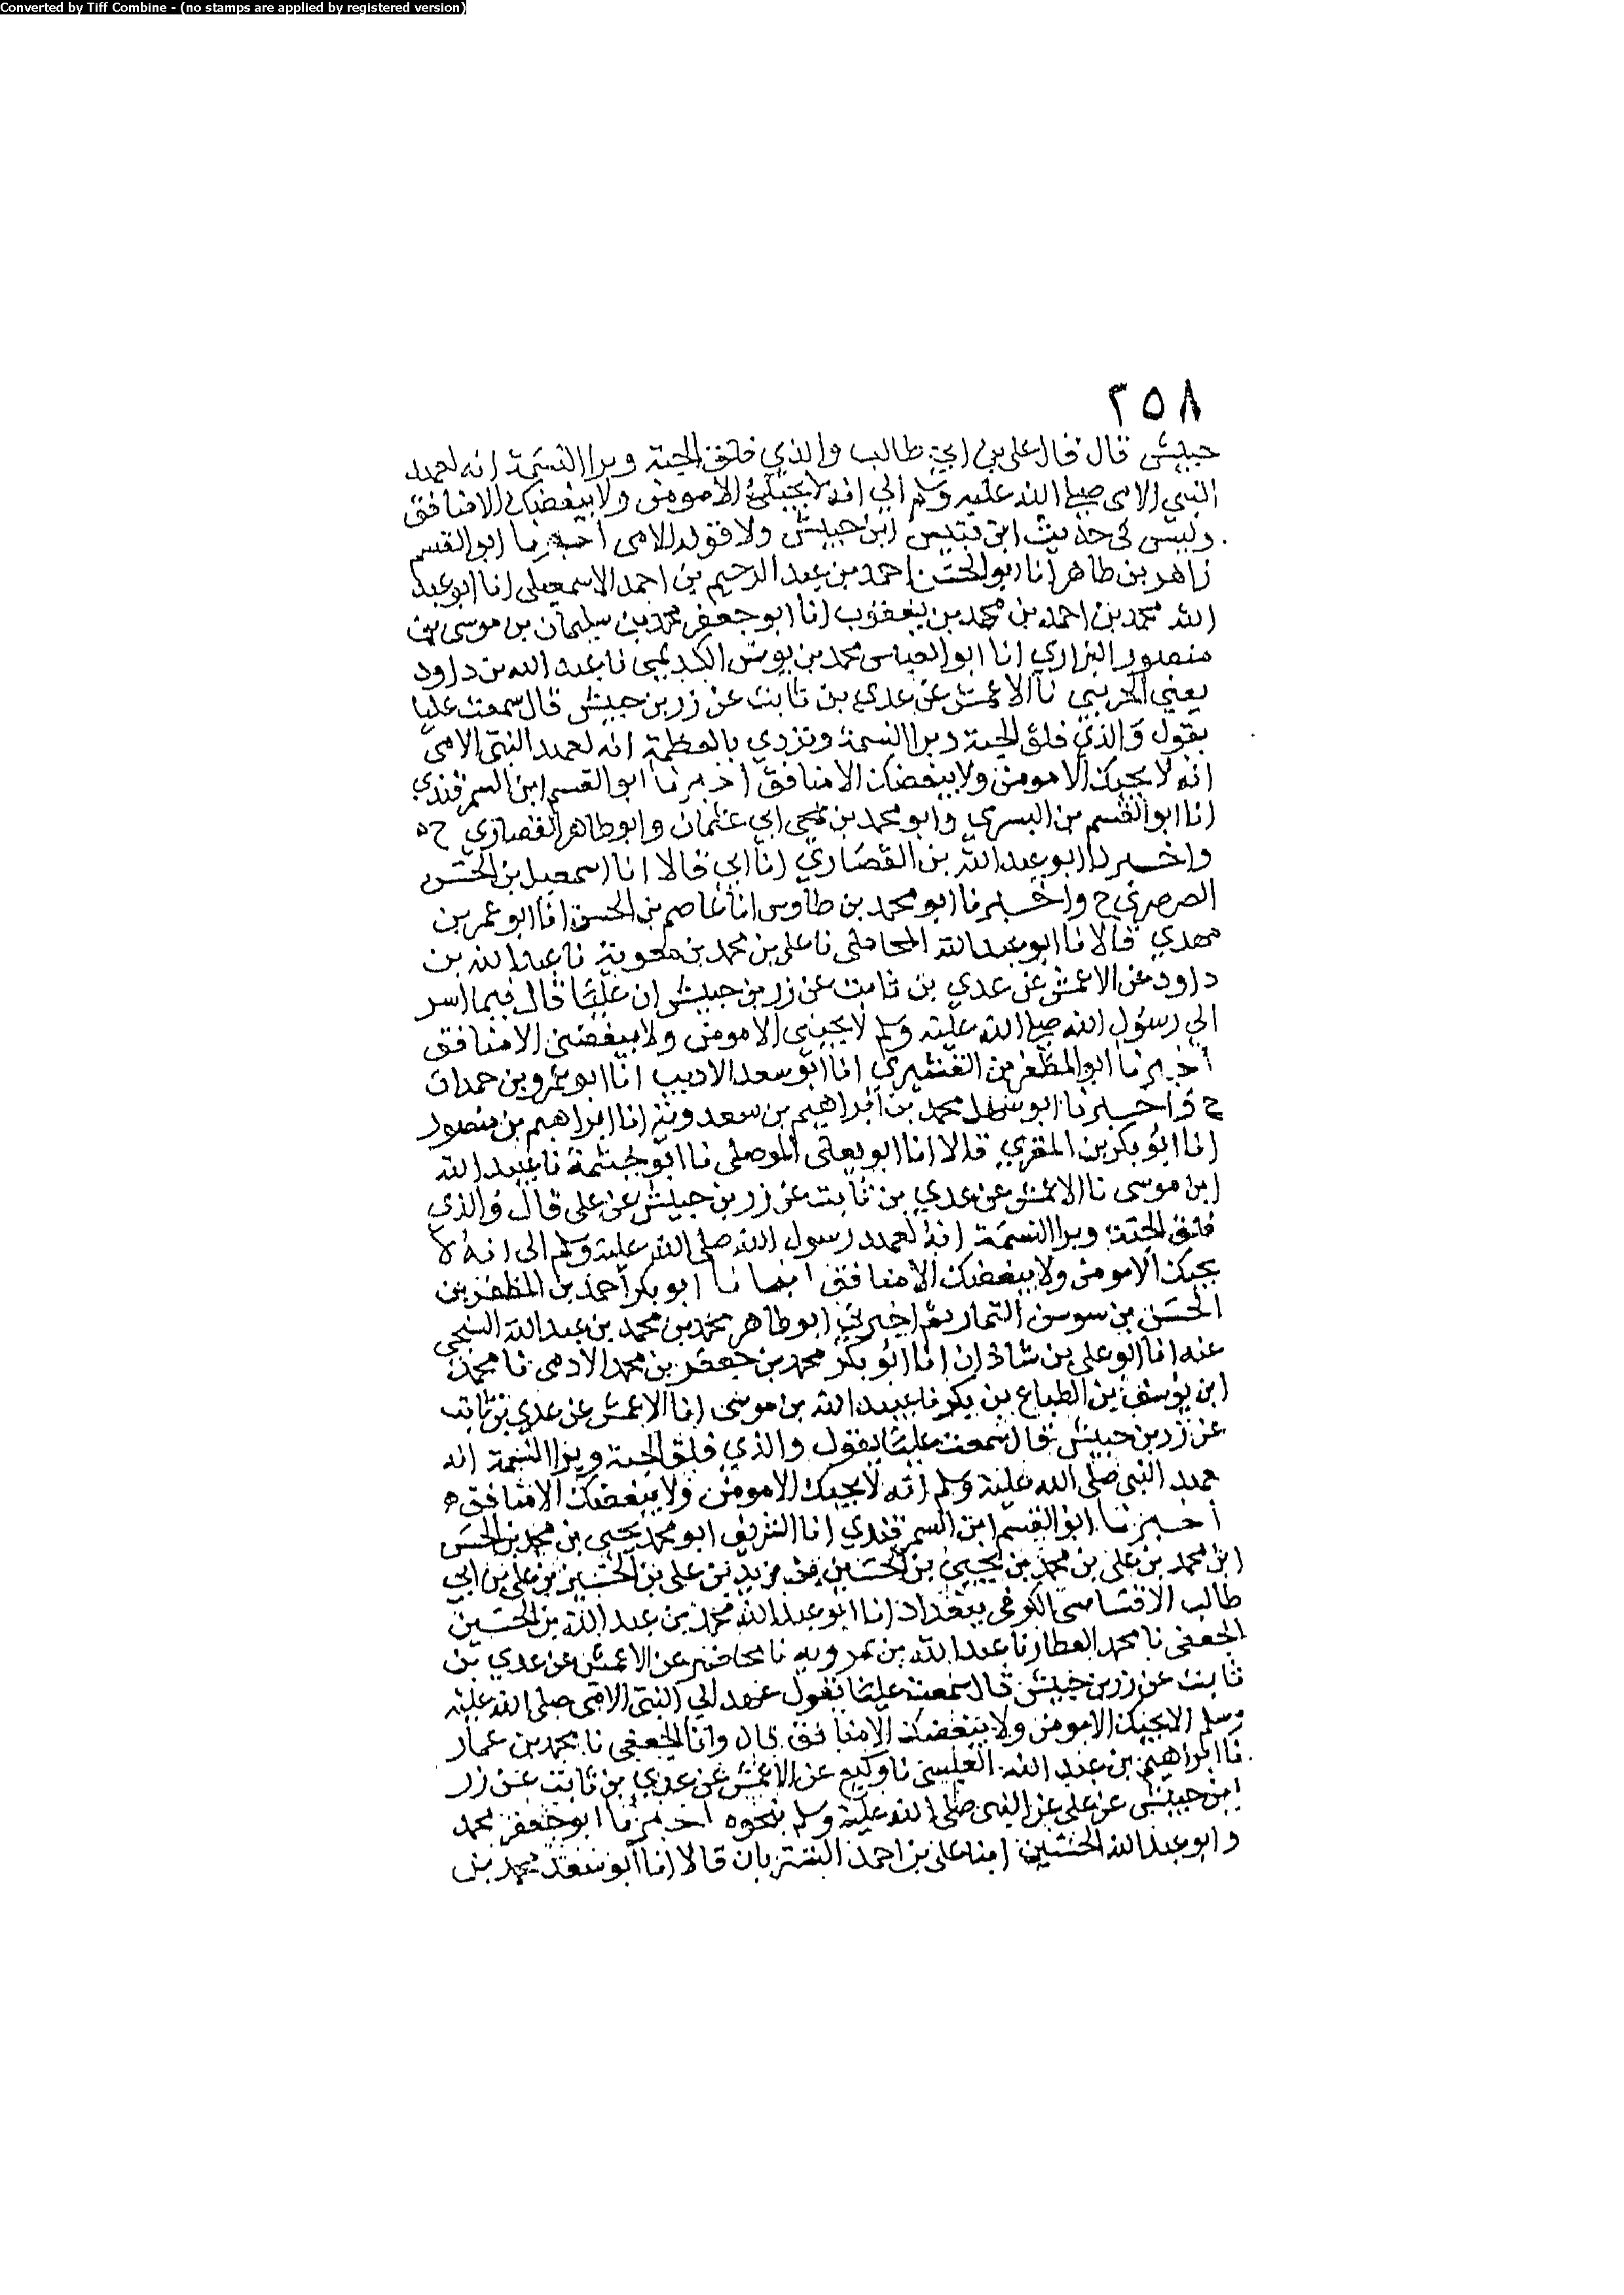 Converted by Tiff Combine - (no stamps are applied by registered version)
٢٥٨
حبيش قال قال على بن ابي طالب والذي فلق الحبة وبرا النسمة انه لعهد
النبي الامى صلى الله عليه وسلم الي انه لا يحبك الا مومن ولا يبغضك الا منافق
وليس فى حديث ابن قبيس ابن حبيش ولا قوله الامى اخبرنا ابو القسم
زاهر بن طاهر انا ابو الحسن احمد بن عبد الرحيم بن احمد الاسمعيلى انا ابو عبد
الله محمد بن احمد بن محمد بن يعقوب انا ابو جعفر محمد بن سليمان بن موسى بن
منصور البزاري انا ابو العباس محمد بن يونس الكديمي نا عبد الله بن داود
يعني الخريبي نا الاعمش عن عدي بن ثابت عن زر بن حبيش قال سمعت عليا
يقول والذي فلق الحبة وبرا النسمة وتردي بالعظمة انه لعهد النبي الامى
انه لا يحبك الا مومن ولا يبغضك الا منافق اخبرنا ابو القسم ابن السمرقندي
انا ابو القسم بن البسري وابو محمد بن ابي عثمان وابو طاهر القصاري ح ه
واخبرنا ابو عبد الله بن القصاري انا ابي قالا انا اسمعيل بن الحسن
الصرصري ح واخبرنا ابو محمد بن طاوس انا عاصم بن الحسن انا ابو عمر بن
مهدي قالا نا ابو عبد الله المحاملى نا على بن محمد بن معوية نا عبد الله بن
داود عن الاعمش عن عدي بن ثابت عن زر بن حبيش ان عليا قال فيما اسر
الي رسول الله صلى الله عليه وسلم لا يحبني الا مومن ولا يبغضني الا منافق
اخبرنا ابو المظفر بن القشيري انا ابو سعد الاديب انا ابو عمرو بن حمدان
ح واخبرنا ابو سهل محمد بن ابراهيم بن سعدوية انا ابراهيم بن منصور
انا ابو بكر بن المقري قالا انا ابو يعلى الموصلى نا ابو خيثمة نا عبيد الله
ابن موسى نا الاعمش عن عدي بن ثابت عن زر بن حبيش عن على قال والذي
فلق الحبة وبرا النسمة انه لعهد رسول الله صلى الله عليه وسلم الى انه لا
يحبك الا مومن ولا يبغضك الا منافق انبانا ابو بكر احمد بن المظفر بن
الحسن بن سوسن التمار ثم اخبرني ابو طاهر محمد بن محمد بن عبد الله السنجي
عنه انا ابو على بن شاذان انا ابو بكر محمد بن جعفر بن محمد الادمى نا محمد
ابن يوسف بن الطباع بن بكر نا عبيد الله بن موسى انا الاعمش عن عدي بن ثابت
عن زر بن حبيش قال سمعت عليا يقول والذي فلق الحبة وبرا النسمة انه
عهد النبي صلى الله عليه وسلم انه لا يحبك الا مومن ولا يبغضك الا منافق ه
اخبرنا ابو القسم ابن السمرقندي انا الشريف ابو محمد يحيى بن محمد بن الحسن
ابن محمد بن على بن محمد بن يحيى بن الحسين بن زيد بن على بن الحسين بن على بن ابي
طالب الاقساسى الكوفى ببغداد انا ابو عبد الله محمد بن عبد الله بن الحسين
الجعفى نا محمد العطار نا عبد الله بن عمرويه نا محاضر عن الاعمش عن عدي بن
ثابت عن زر بن حبيش قال سمعت عليا يقول عهد الي النبي الامى صلى الله عليه
وسلم الا يحبك الا مومن ولا يبغضك الا منافق قال وانا الجعفى نا محمد بن عمار
نا ابراهيم بن عبد الله العبسي نا وكيع عن الاعمش عن عدي بن ثابت عن زر
ابن حبيش عن على عن النبي صلى الله عليه وسلم نحوه اخبرنا ابو جعفر محمد
وابو عبد الله الحسين ابنا على بن احمد قالا انا ابو سعد محمد بن